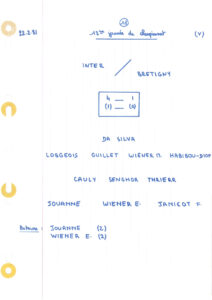 22.2.81
12ème journée de championnat
(V)
INTER / BRETIGNY
4 — 1
(1) — (0)
DA SILVA
LORGEOIS GUILLET WIENER D. HABIBOU-DIOP
CAULY SENGHOR THRIERR
JOUANNE WIENER E. JANICOT F.
Buteurs : JOUANNE (2)
WIENER E. (2)